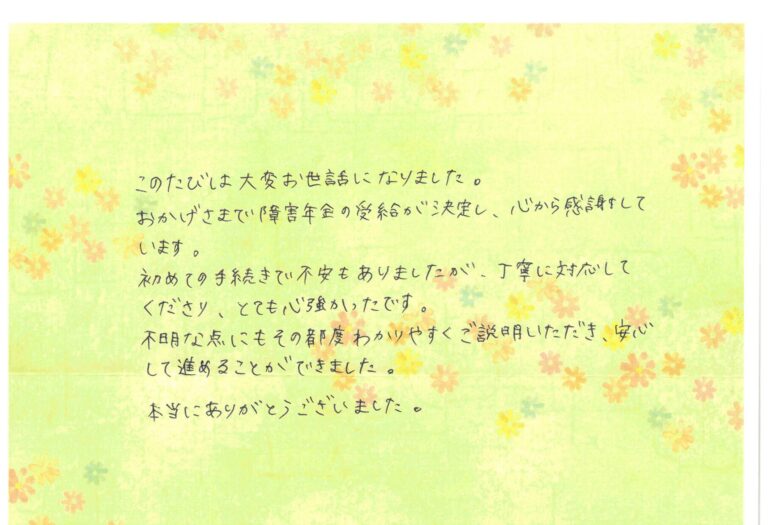 このたびは大変お世話になりました。
おかげさまで障害年金の受給が決定し、心から感謝して
います。
初めての手続きで不安もありましたが、丁寧に対応して
くださり、とても心強かったです。
不明な点にもその都度わかりやすくご説明いただき、安心
して進めることができました。
本当にありがとうございました。